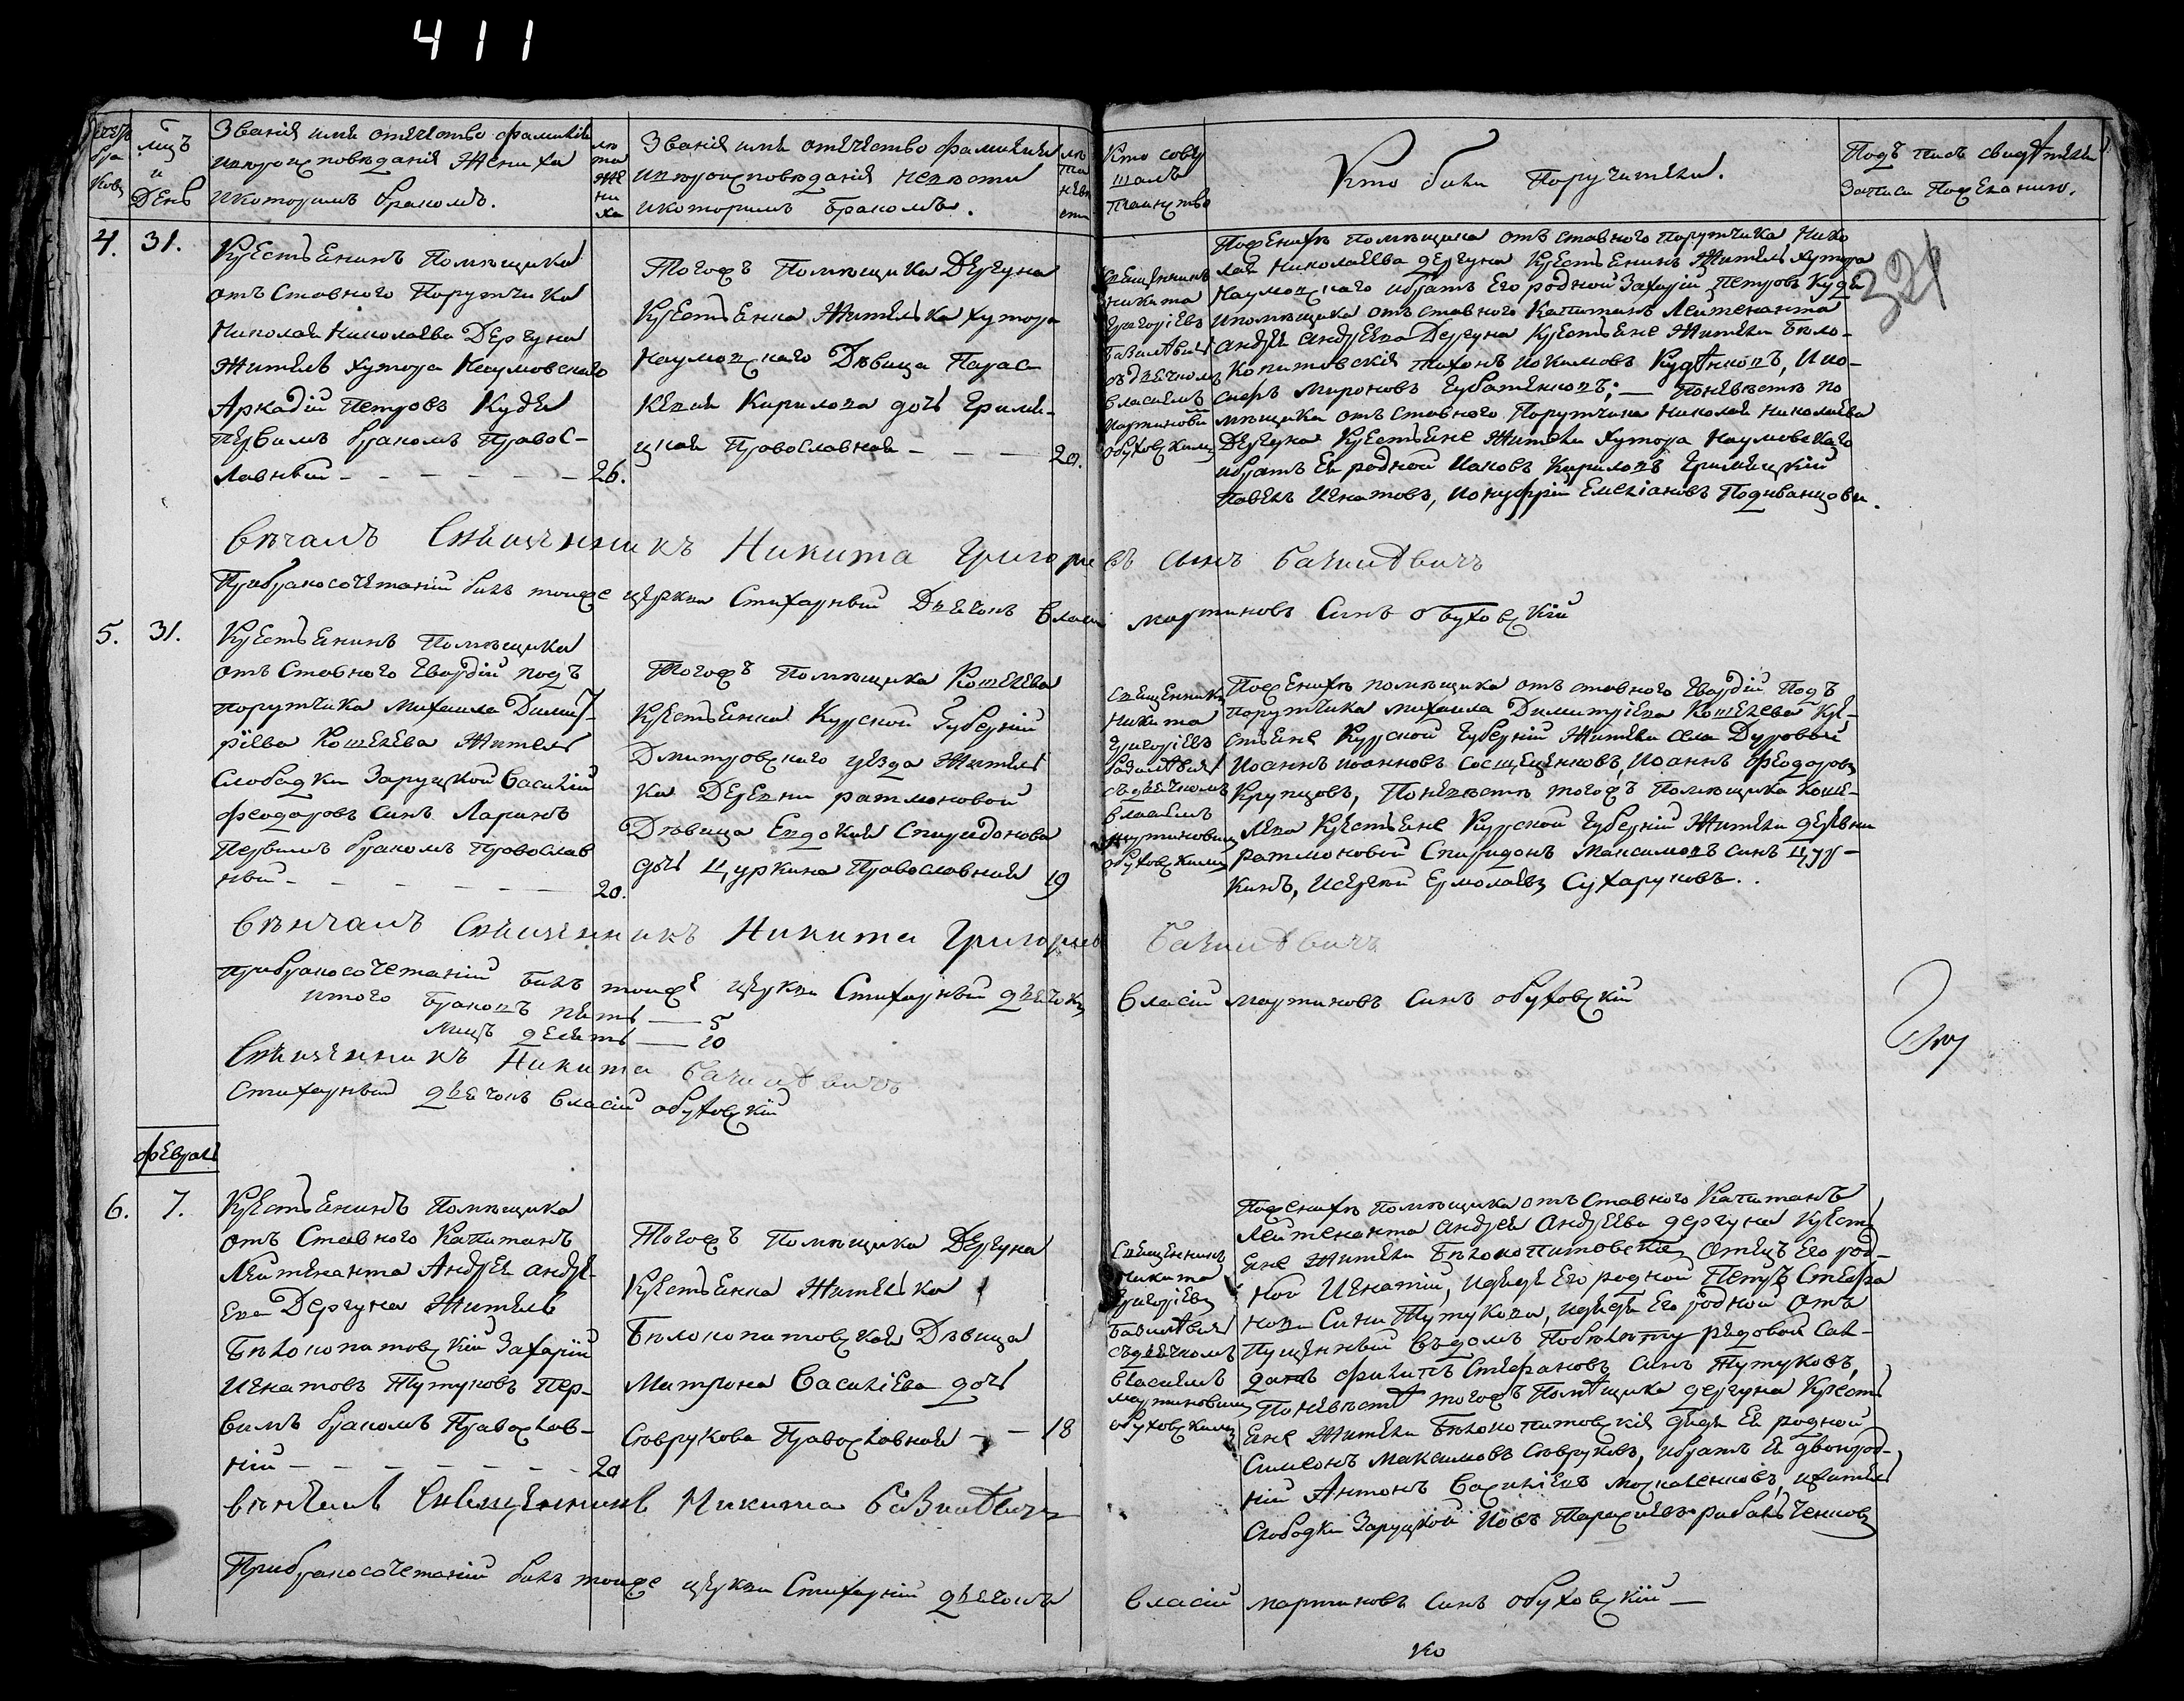 411
Звания имя отечество фамилия
и вероисповедания жениха
и которимъ бракомъ.
Звания имя отечество фамилия
и вероисповедания невести
и которимъ бракомъ.
Кто совер
шалъ
таинство
Кто били Поручители.
Подъ писъ свидѣтелей
записи По желанию.
321
4. 31.
Крестьянинъ Помещика
отъ Ставного Порутчика
Николая Николаева Дергуна
Житель хутора Наумовского
Аркадій Петровъ Кудѣ
первимъ бракомъ Правос-
лавный 26.
Тогожъ Помещика Дергуна
Крестьянка Жителька хутора
Наумовского Девица Парас-
кевия Кирилова дочь
Православная 20.
Священникъ
Никита
Григоріевъ
Базилѣвичъ
съ дьячкомъ
Власиемъ
Мартиновимъ
Обуховскимъ
По женихе помещика отъ ставного порутчика Нико
лая Николаева дергуна Крестьянинъ Житель хутора
Наумовского и братъ его родной Захарій Петровъ
и помещика отъ ставного Капитанъ Лейтенанта
Андрея Андреева Дергуна Крестьяне Жители Бело-
копитовския Тихонъ Иокимовъ Ио-
сифъ Мироновъ Губатенковъ; — По невесте по
мещика отъ Ставного Порутчика Николая Николаева
Дергуна Крестьяне Жители хутора Наумовского
и братъ ея родной Иаковъ Кириловъ
Павелъ Игнатовъ, Ионуфрій Емелиановъ
Венчалъ Священникъ Никита Григориевъ синъ Базилѣвичъ
При бракосочетаній билъ тоижде церкви Стихарный Дьячокъ Власій Мартиновъ Синъ Обуховскій
5. 31.
Крестьянинъ Помещика
отъ Ставного Гвардій подъ
порутчика Михаила Димит-
ріева Кошелева Житель
Слободки Заруцкой Василій
Феодоровъ синъ Ларинъ
Первимъ бракомъ Православ
ный 20.
Тогожъ Помещика Кошелева
Крестьянка Курской Губерній
Дмитровского уезда Житель
ка Деревни ратмановой
Девица Евдокия Спиридонова
дочь Цуркина Православния 19
Священникъ
Никита
Григоріевъ
Базилѣвичъ
съ дьячкомъ
Власіемъ
Мартиновимъ
обуховскимъ
По женихе помещика отъ ставного Гвардій Подъ
порутчика михаила Димитріева Кошелева Кре-
стьяне Курской Губерній Жители села Дуровой
Иоаннъ Иоанновъ Иоаннъ Феодоровъ
Крупцовъ, По невесте тогожъ Помещика Коше-
лева Крестьяне Курской Губерній Жители деревни
ратмоновой Спиридонъ Максимовъ синъ Цур-
кинъ, Ермолаевъ Сухаруковъ.
Венчалъ Священникъ Никита Григориевъ Базилѣвичъ
При бракосочетаний билъ тоижде церкви Стихарный дьячокъ Власій Мартиновъ синъ обуховскій
итого браковъ пять — 5
лицъ десять — 10
Священникъ Никита Базилѣвичъ
Стихарный дьячокъ Власій обуховскій
Февраль
6. 7.
Крестьянинъ Помещика
отъ Ставного Капитанъ
Лейтенанта Андрея Андре-
ева Дергуна Житель
Белокопитовскій Захарій
Игнатовъ Тутуковъ Пер-
вимъ бракомъ Православ-
ній 20
Тогожъ Помещика Дергуна
Крестьянка Жителька
Белокопитовская Девица
Матрона Василіева дочь
Севрукова Православная 18
Священникъ
Никита
Григоріевъ
Базилѣвичъ
съ дьячкомъ
Власиемъ
Мартиновимъ
обуховскимъ
По женихе помещика отъ Ставного Капитанъ
Лейтенанта Андрея Андреева дергуна Кресть
яне Жители Белокопитовския Отецъ его род-
ной Игнатій, и дядя его родной Петръ Стефа
новы Сини Тутукови, и дядя его родной Отъ
пущенный въ домъ По билету рядовой Сол-
датъ Филипъ Стефановъ синъ Тутуковъ,
По невестѣ тогожъ Помѣщика дергуна Кресть
яне Жители Белокопитовския дядя ея родной
Симеонъ Максимовъ Севруковъ, и братъ ея двоюрод-
ній Антонъ Василіевъ Москаленковъ, и житель
Слободки Заруцкой Иовъ
Венчалъ Священникъ Никита Базилѣвичъ
При бракосочетаній билъ тоижде церкви Стихарній дьячокъ Власій мартиновъ синъ обуховскій —